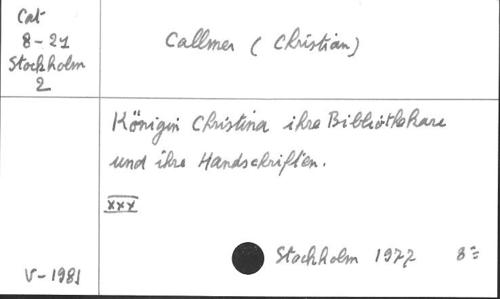 Cat
8-21
Stockholm
2
Callmer (Christian)
Königin Christina ihre Bibliothekare
und ihre Handschriften.
xxx
Stockholm 1977 8°
V-1981